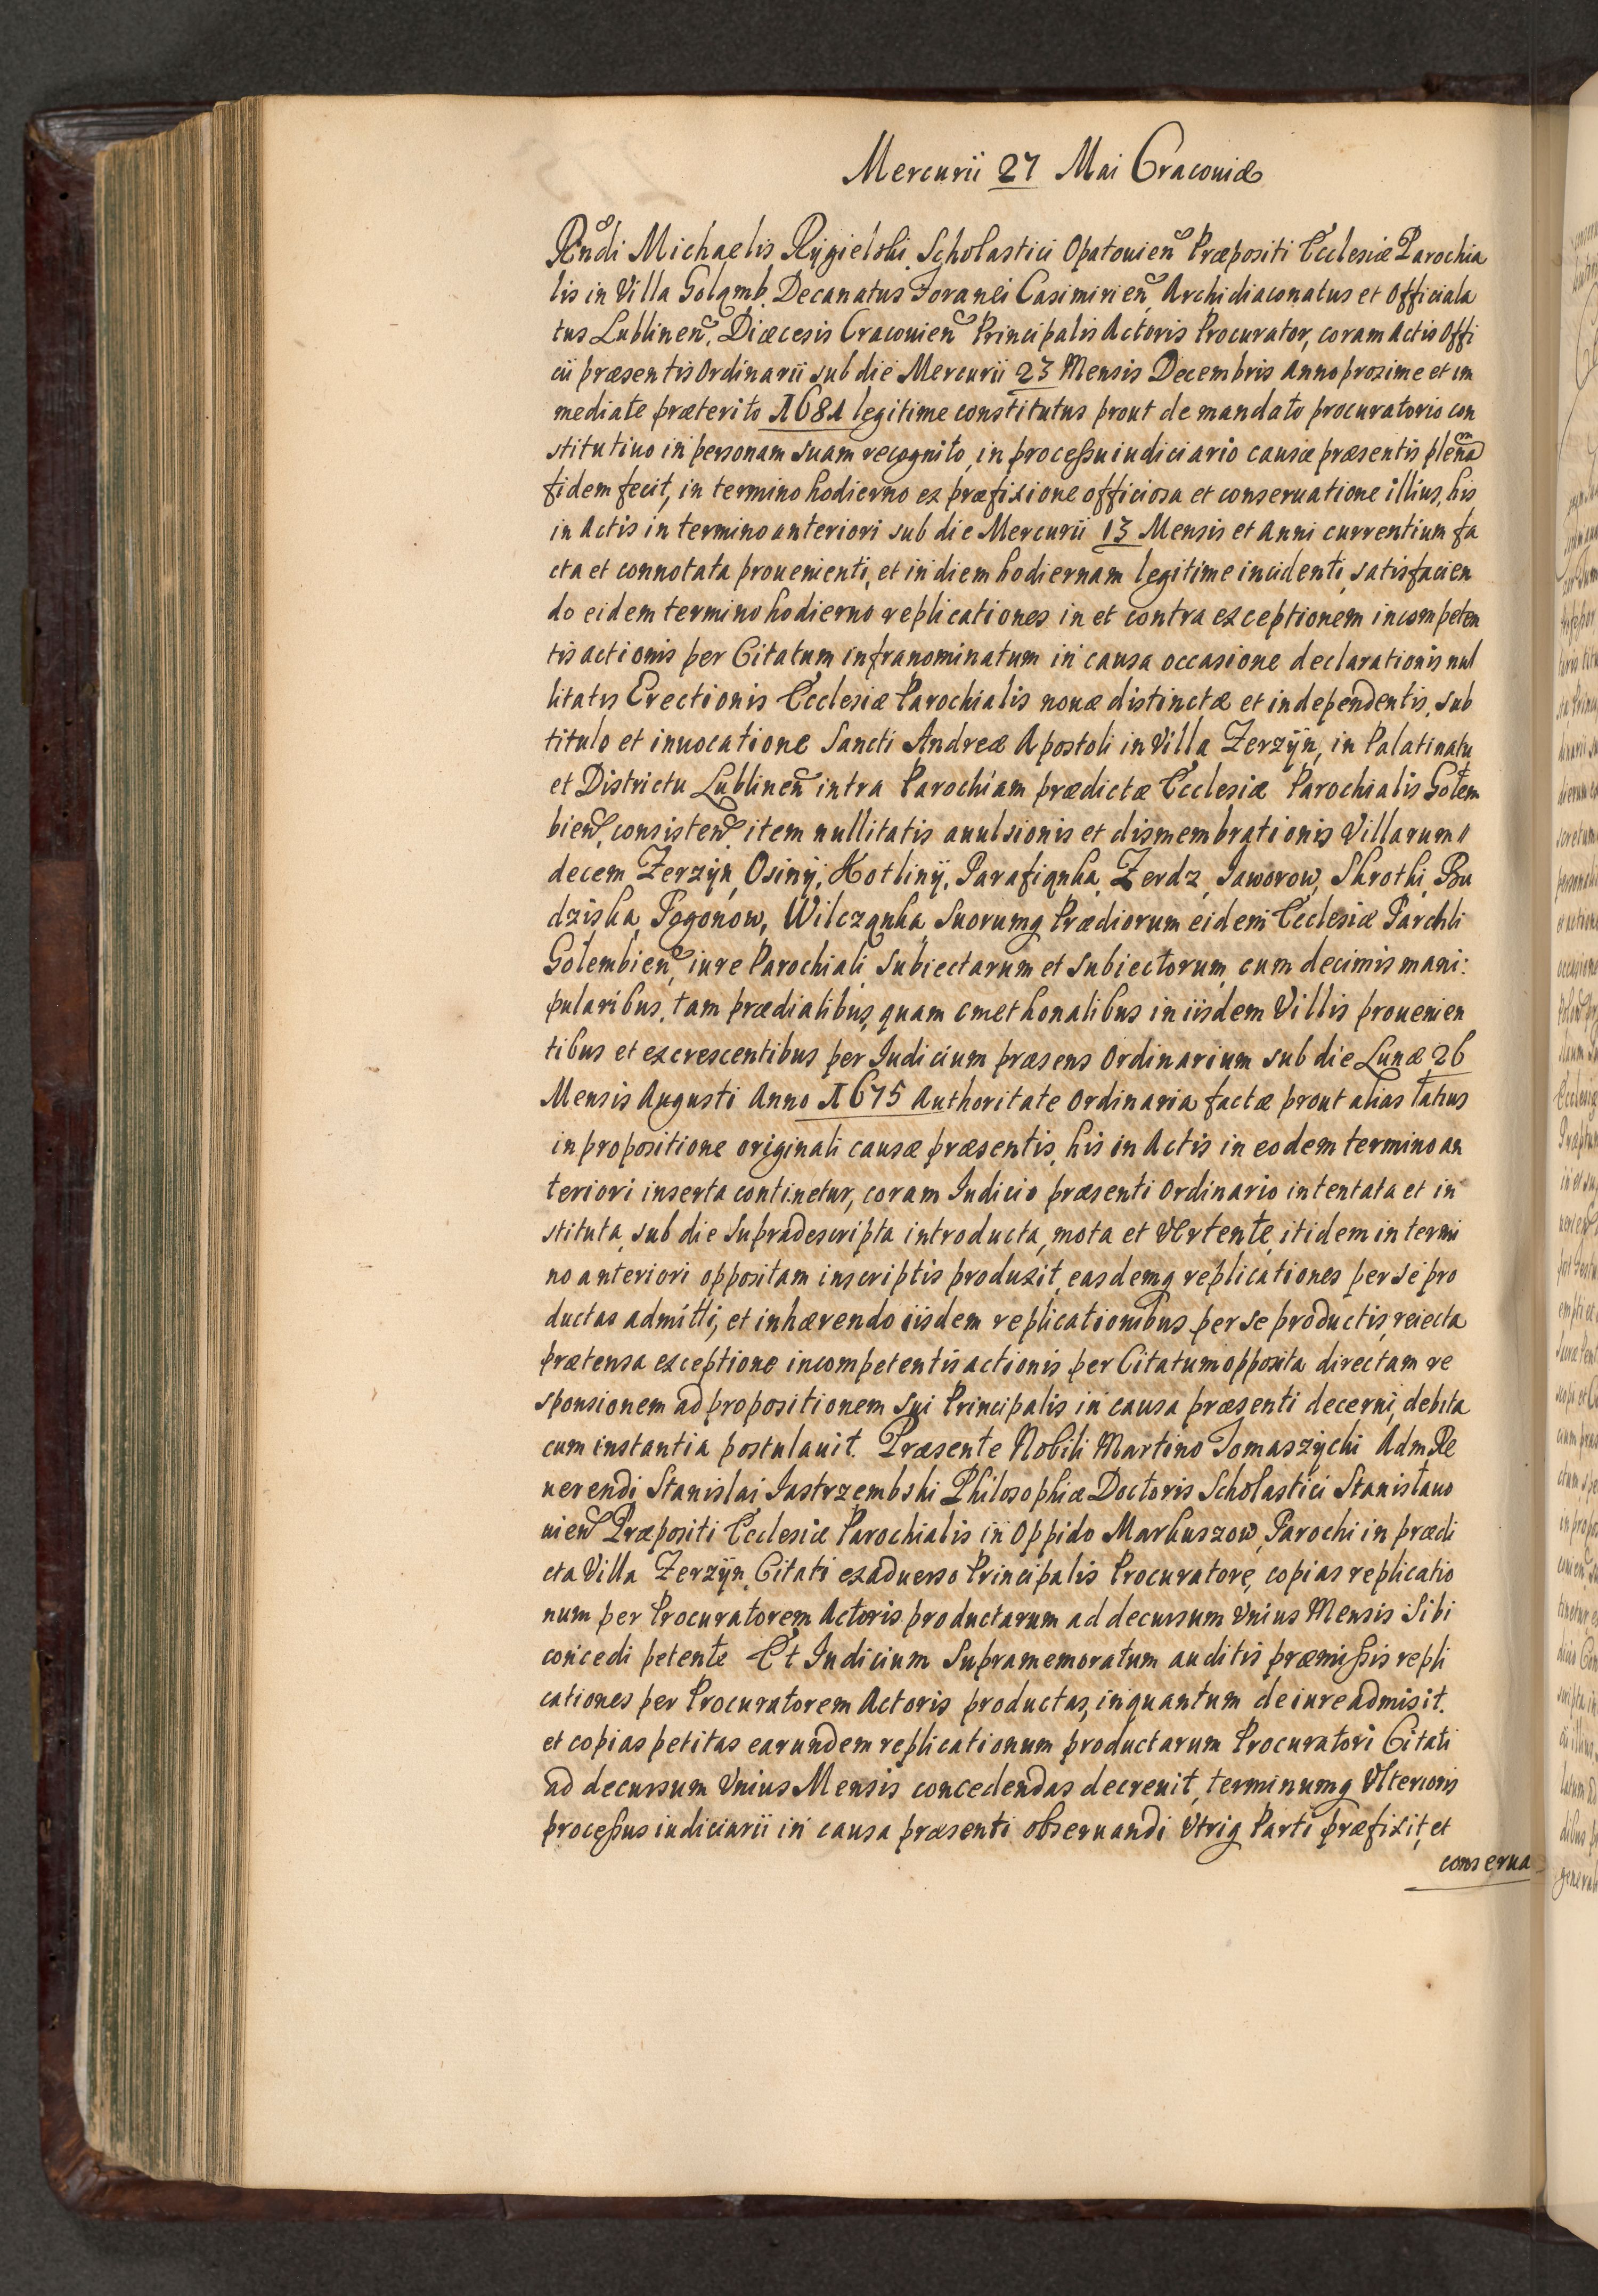 Mercurii 27 Mai Cracouiæ
Rndi Michaelis Rygielski Scholastici Opatouien Præpositi Ecclesiæ Parochia
lis in Villa Goląmb, Decanatus Foranei Casimirien, Archidiaconatus et Officiala
tus Lublinen, Diæcesis Cracouien Principalis Actoris Procurator, coram Actis Offi
cii præsentis Ordinarii sub die Mercurii 23 Mensis Decembris Anno proxime et im
mediate præterito 1681 legitime constitutus prout de mandato procuratorio con
stitutiuo in personam suam recognito, in processu iudiciario causæ præsentis plenam
fidem fecit, in termino hodierno ex præfixione officiosa et conseruatione illius, his
in Actis in termino anteriori sub die Mercurii 13 Mensis et Anni currentium fa
cta et connotata prouenienti, et in diem hodiernam legitime incidenti, satisfacien
do eidem termino hodierno replicationes in et contra exceptionem incompeten
tis actionis per Citatum infranominatum in causa occasione declarationis nul
litatis Erectionis Ecclesiæ Parochialis nouæ distinctæ et independentis, sub
titulo et inuocatione Sancti Andreæ Apostoli in Villa Zerzÿn, in Palatinatu
et Districtu Lublinen intra Parochiam prædictæ Ecclesiæ Parochialis Golem
bien, consisten, item nullitatis auulsionis et dismembrationis Villarum
decem Zerzÿn, Osinÿ, Kotlinÿ, Parafiąnka, Zerdz, Iaworow, Skrotki, Bu
dziska, Pogonow, Wilcząnka, Suorumq Prædiorum eidem Ecclesiæ Parchli
Golembien, iure Parochiali, subiectarum et subiectorum, cum decimis mani:
pularibus, tam prædialibus, quam cmethonalibus in iisdem Villis prouenien
tibus et excrescentibus per Iudicium præsens Ordinarium sub die Lunæ 26
Mensis Augusti Anno 1675 Authoritate Ordinaria factæ prout alias latius
in propositione originali causæ præsentis, his in Actis in eodem termino an
teriori inserta continetur, coram Iudicio præsenti Ordinario intentata et in
stituta, sub die supradescripta introducta, mota et Vertente, itidem in termi
no anteriori oppositam in scriptis produxit, easdemq replicationes per se pro
ductas admitti, et inhærendo iisdem replicationibus per se productis, reiecta
prætensa exceptione incompetentis actionis per Citatum opposita directam re
sponsionem ad propositionem sui Principalis in causa præsenti decerni, debita
cum instantia postulauit. Præsente Nobili Martino Tomaszÿcki Adm Re
uerendi Stanislai Iastrzembski Philosophiæ Doctoris Scholastici Stanislauo
uien Præpositi Ecclesiæ Parochialis in Oppido Markuszow, Parochi in prædi
cta Villa Zerzÿn, Citati exaduerso Principalis Procuratore, copias replicatio
num per Procuratorem Actoris productarum ad decursum Vnius Mensis Sibi
concedi petente Et Iudicium Supramemoratum auditis præmissis repli
cationes per Procuratorem Actoris productas, inquantum de iure admisit.
et copias petitas earundem replicationum productarum Procuratori Citati
ad decursum Vnius Mensis concedendas decreuit, terminumq Vlterioris
processus iudiciarii in causa præsenti obseruandi Vtriq Parti præfixit, et
conserua